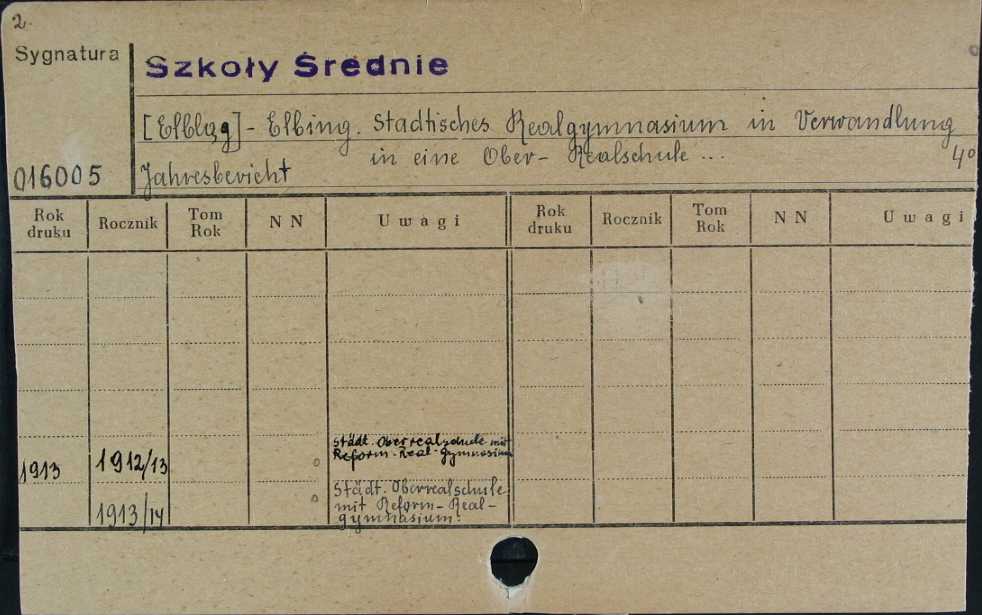 2.
Sygnatura
Szkoły Średnie
[Elbląg] - Elbing. Stadtisches Realgymnasium in Verwandlung
in eine Ober- Realschule ... 4°
016005 Jahresbericht
Rok druku Rocznik Tom Rok NN Uwagi Rok druku Rocznik Tom Rok NN Uwagi
1913 1912/13 Städt. Oberrealschule mit
Reform-Real-gymnasium
1913/14 Städt. Oberrealschule
mit Reform-Real-
gymnasium.